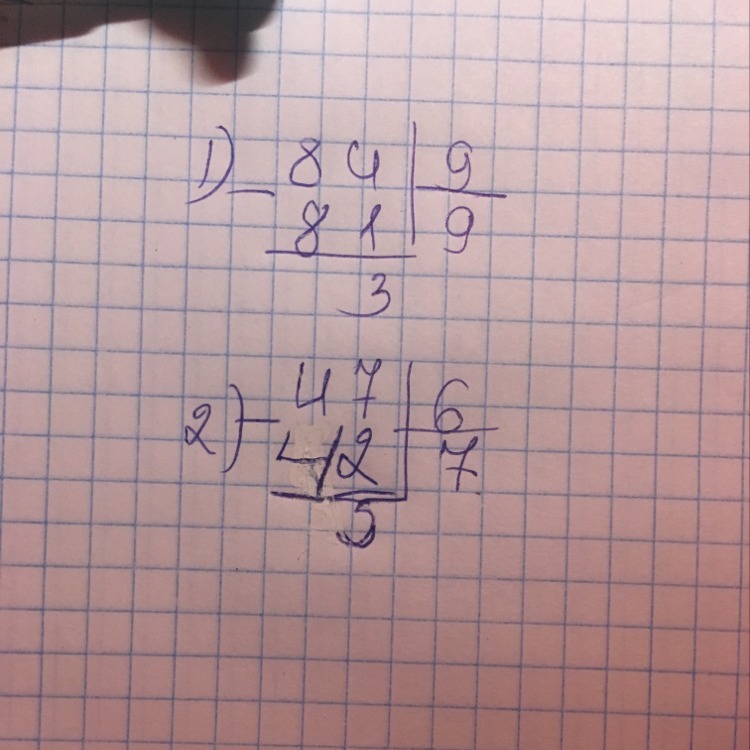 1) - 84 | 9
81 | 9
3
2) - 47 | 6
42 | 7
5